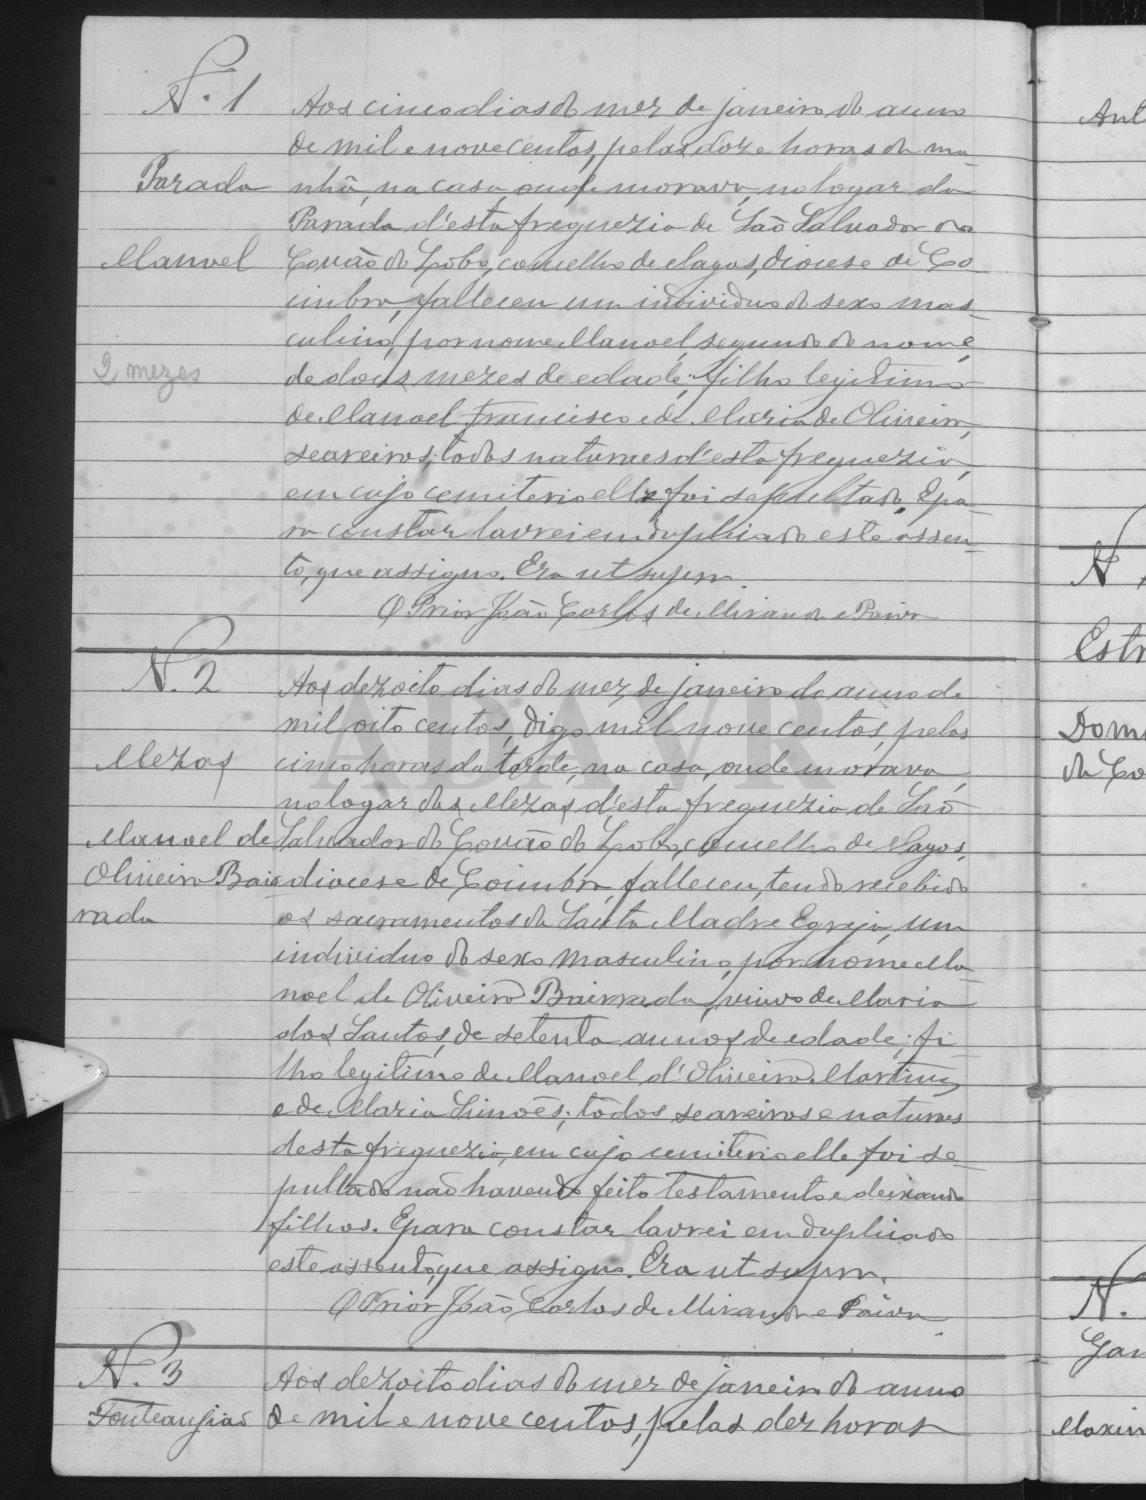 N. 1
Parada
Manoel
2 mezes
Aos cinco dias do mez de janeiro do anno
de mil e novecentos, pelas doze horas da ma-
nhã, na casa, onde morava, no logar da
Parada d'esta freguezia de São Salvador do
Covão do Lobo, concelho de Vagos, diocese de Co
imbra, falleceu um individuo do sexo mas-
culino, por nome Manoel, segundo do nome,
de dous mezes de edade; filho legitimo
de Manoel Francisco e de Maria de Oliveira,
seareiros; todos naturaes d'esta freguezia,
em cujo cemiterio elle foi sepultado. E pa-
ra constar lavrei em duplicado este assen-
to, que assigno. Era ut supra.
O Prior João Carlos de Miranda e Paiva
N. 2
Mezas
Manoel de
Oliveira Bair
rada
Aos dezoito dias do mez de janeiro do anno de
mil oito centos, digo mil nove centos, pelas
cinco horas da tarde, na casa, onde morava,
no logar das Mezas d'esta freguezia de São
Salvador do Covão do Lobo, concelho de Vagos,
diocese de Coimbra, falleceu, tendo recebido
os sacramentos da Santa Madre Egreja, um
individuo do sexo masculino, por nome Ma
noel de Oliveira Bairrada, viuvo de Maria
dos Santos, de setenta annos de edade; fi-
lho legitimo de Manoel d'Oliveira Martins
e de Maria Simões; todos seareiros e naturaes
desta freguezia, em cujo cemiterio elle foi se-
pultado não havendo feito testamento e deixando
filhos. E para constar lavrei em duplicado
este assento, que assigno. Era ut supra.
O Prior João Carlos de Miranda e Paiva
N. 3
Aos dezoito dias do mez de janeiro do anno
de mil e nove centos, pelas dez horas
ADAVR
Ant
N.
Estr
Dom
da Co
N.
Gan